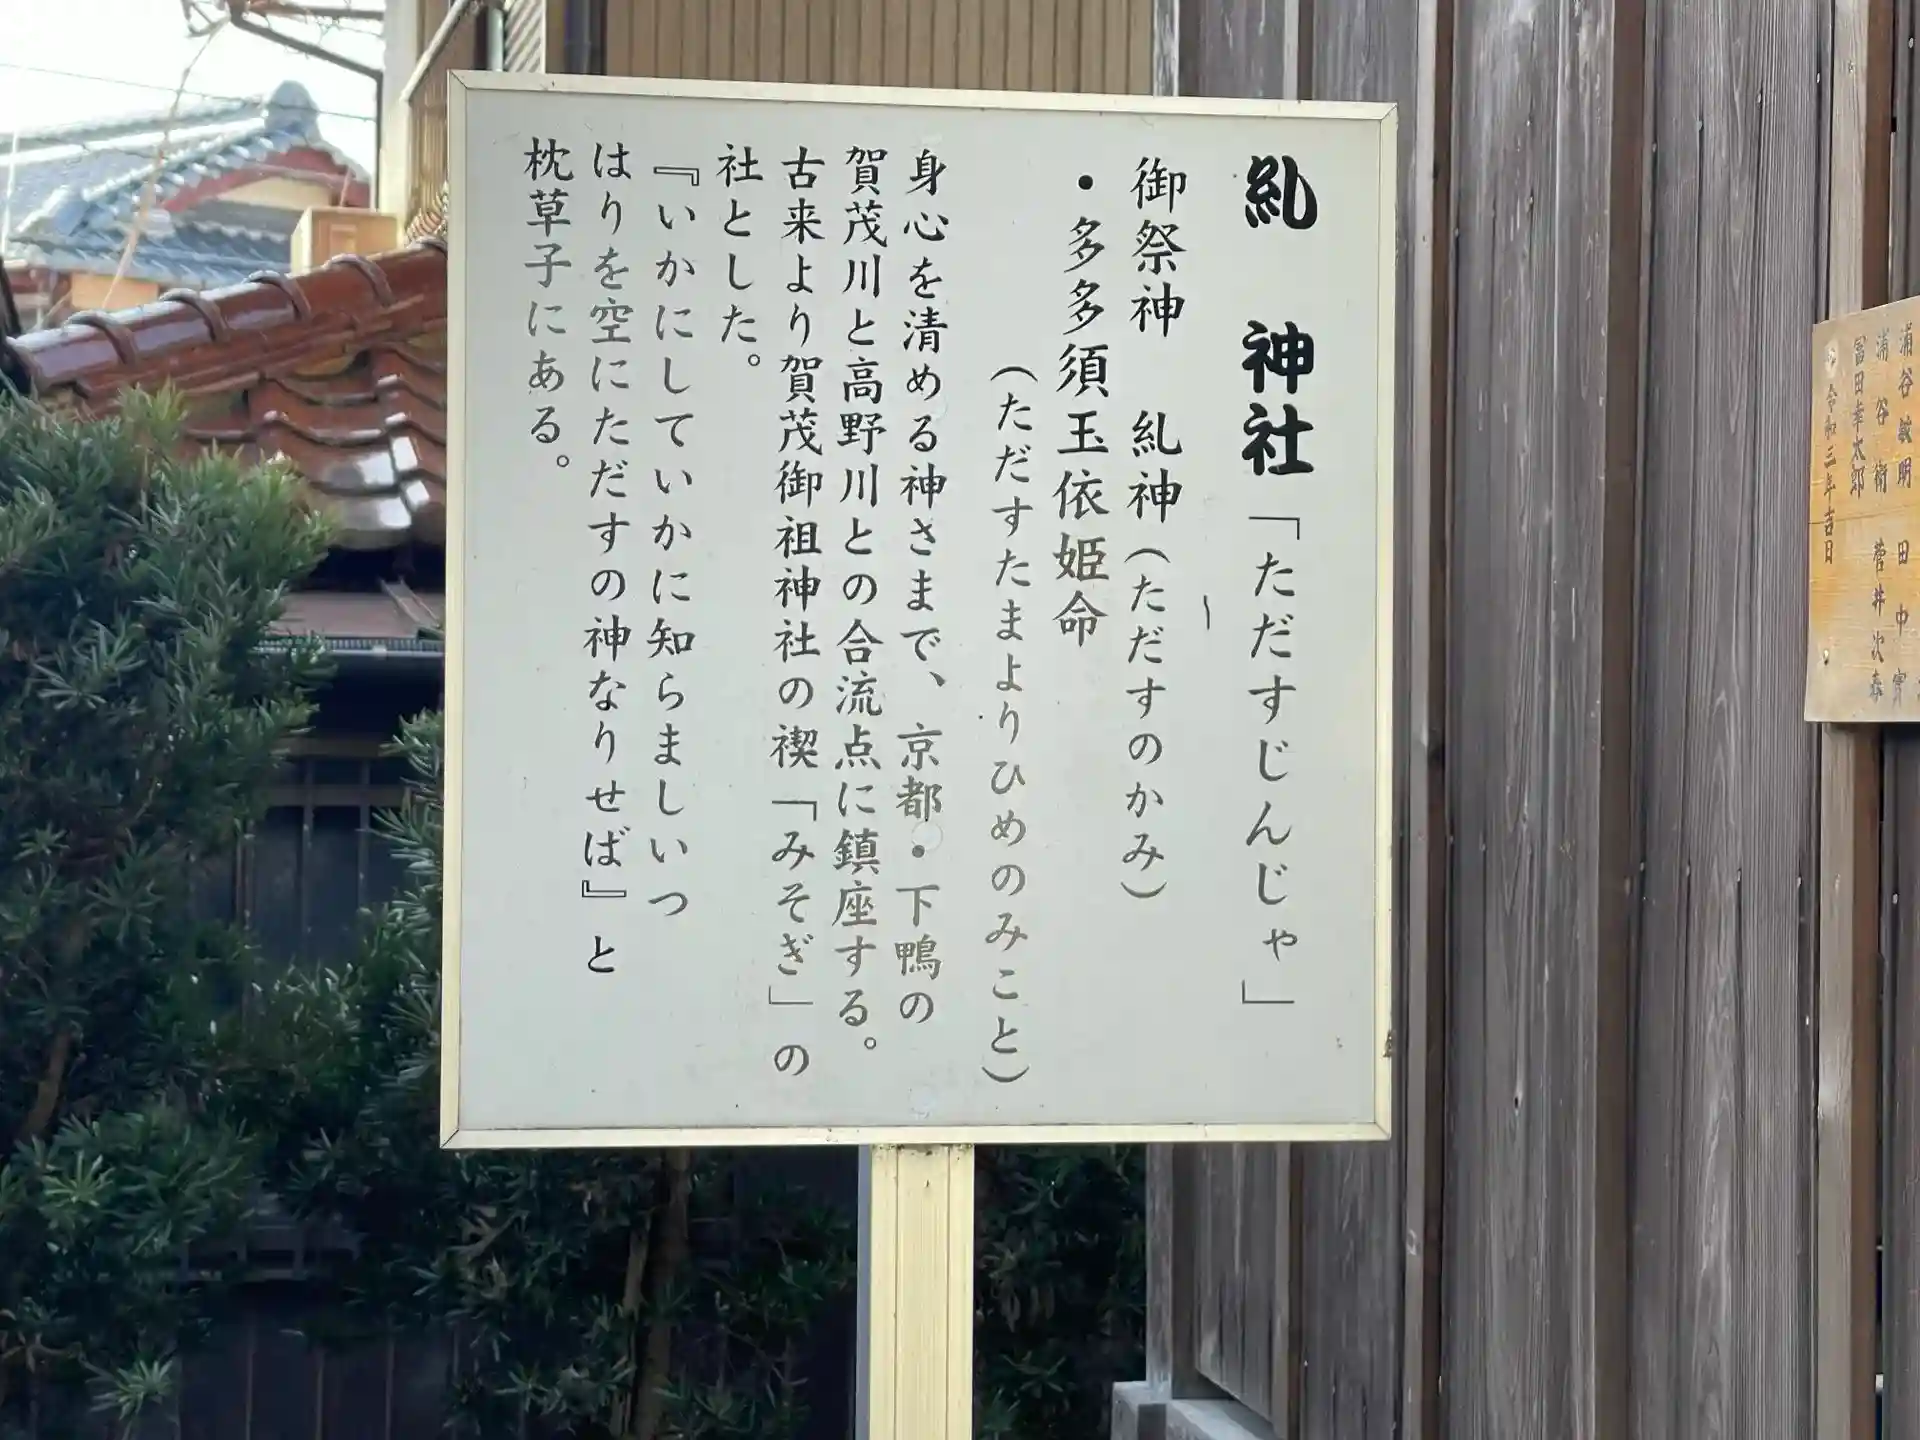 糺 神社「ただすじんじゃ」
御祭神 糺神(ただすのかみ)
・多多須玉依姫命
(ただすたまよりひめのみこと)
身心を清める神さまで、京都・下鴨の
賀茂川と高野川との合流点に鎮座する。
古来より賀茂御祖神社の禊「みそぎ」の
社とした。
『いかにしていかに知らましいつ
はりを空にただすの神なりせば』と
枕草子にある。
浦谷敏明 田中實
浦谷衛 菅井次森
冨田幸太郎
令和三年吉日